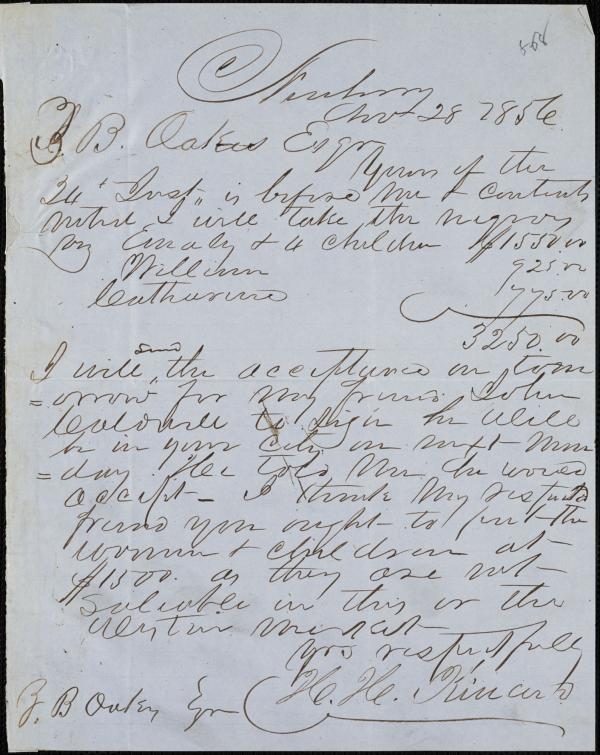 568
Newberry
Nov 28 1856
Z. B. Oakes Esqr
Yours of the
24th Inst,, is before me & contents
noted I will take the negroes
viz Emaly & 4 children $1550.00
William 925.00
Catharine 775.00
3250.00
I will send the acceptance on tom
=orrow for my friend John
Coldwell to sign he will
be in your city on next Mon
=day. He told me he would
accept — I think my respected
friend you ought to put the
woman & children at
$1500. as they are not
saleable in this or the
western market
yrs respectfully
H. H. Kinard
Z. B Oakes Esqr